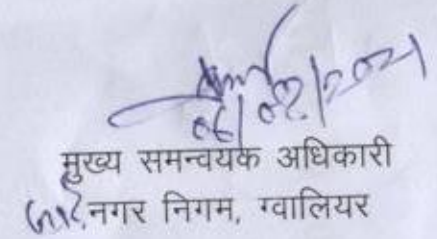 06/02/2021
मुख्य समन्वयक अधिकारी
नगर निगम, ग्वालियर